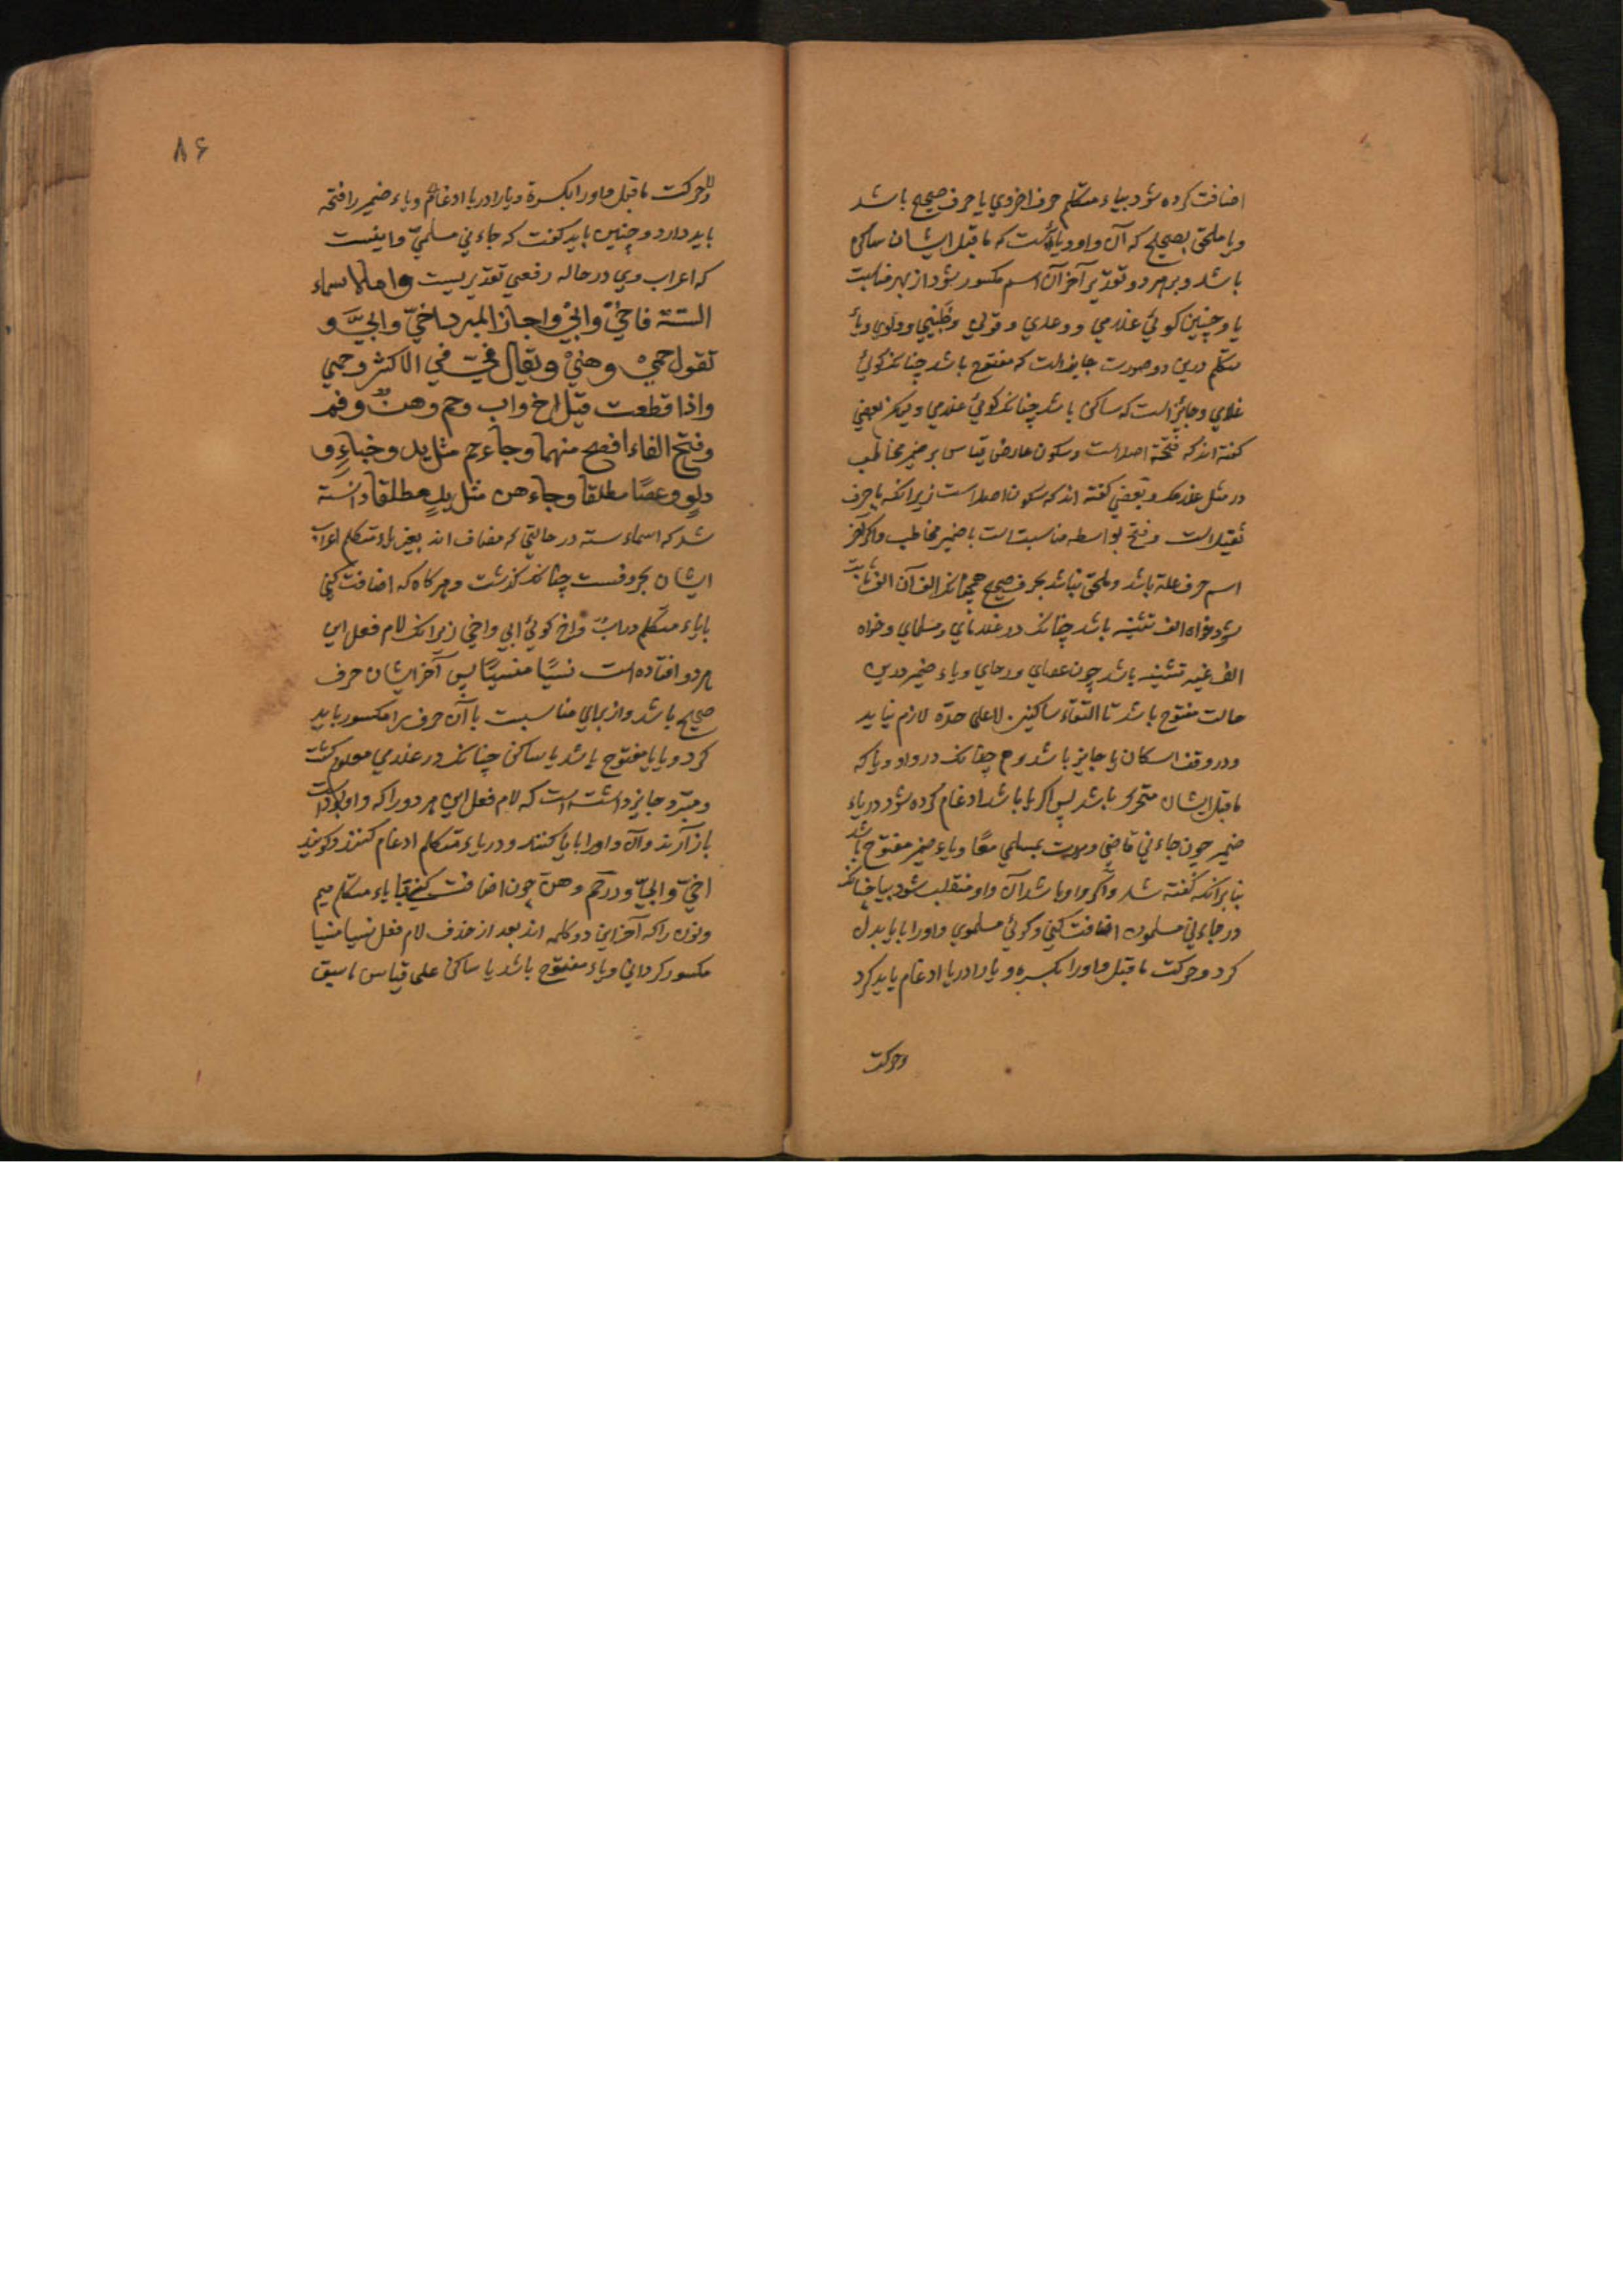 اضافت کرده شود بیاء متکلم حرف اخر وی یا حرف صحیح باشد
و یا ملحق بصحیح که آن واو و یا است که ماقبل ایشان ساکن
باشد و بر هر دو تقدیر آخر آن اسم مکسور شود از بهر مناسبت
یا و چنین کوئی غلامی و وعدی و قولی و ظبیی و دلوی و یاء
متکلم درین دو صورت جایز است که مفتوح باشد چنانکه کوئی
غلامی و جائز است که ساکن باشد چنانکه کوئی غلامی و لیکن بعضی
کفته اند که فتحه اصل است و سکون عارض قیاس بر ضمیر مخاطب
در مثل غلامک و بعضی کفته اند که سکون اصل است زیرانکه یا حرف
ثقیل است و فتح بواسطه مناسبت است با ضمیر مخاطب و اکر آخر
اسم حرف علة باشد و ملحق نباشد بحرف صحیح همچنانکه الف آن الف ثابت
شود خواه الف تثنیه باشد چنانکه در غلامای و مسلمای و خواه
الف غیر تثنیه باشد چون عصای و رحای و یاء ضمیر درین
حالت مفتوح باشد تا التقاء ساکنین لا علی حدّه لازم نیاید
و در وقف اسکان یا جایز باشد و ح چنانکه در واو و یا که
ماقبل ایشان متحرک باشد پس اکر یا باشد ادغام کرده شود در یاء
ضمیر چون جاءنی قاضی و مررت بمسلمی معًا و یاء ضمیر مفتوح باشد
بنابرانکه کفته شد و اکر واو باشد آن واو منقلب شود بیا چنانکه
در جاءنی مسلمون اضافت کنی و کوئی مسلموی واو را با یا بدل
کرد و حرکت ماقبل واو را بکسره و یا را در یا ادغام باید کرد
وحرکت
۸۶
وحرکت ماقبل واو را بکسرة و یا را در یا ادغام و یاء ضمیر را فتحه
باید داد و چنین باید کفت که جاءنی مسلمیّ و اینست
که اعراب وی در حاله رفعی تقدیریست واما الاسماء
الستة فاخیْ وابیْ واجاز المبرد اخیّ وابیّ و
تقول حمیْ وهنیْ ویقال فیّ فی الاکثر وفمی
واذا قطعت قیل اخ واب وحم وهن وفم
وفتح الفاء افصح منهما وجاء حم مثل ید وخباء و
دلو وعصًا مطلقًا وجاء هن مثل ید مطلقا دانسته
شد که اسماء سته در حالتی که مضاف اند بغیر یاء متکلم اعراب
ایشان بحروفست چنانکه کذشت و هرکاه که اضافت کنی
با یاء متکلم در اب و اخ کوئی ابی و اخی زیرانک لام فعل این
هر دو افتاده است نسیًا منسیًا پس آخر ایشان حرف
صحیح باشد و از برای مناسبت با آن حرف را مکسور باید
کرد و یا یا مفتوح باشد یا ساکن چنانک در غلامی معلوم کشت
و مبرّد جایز داشته است که لام فعل این هر دو را که واو بود است
باز آرند و آن واو را با یا کنند و در یاء متکلم ادغام کنند و کویند
اخیّ و ابیّ و در حم و هن چون اضافت کنی با یاء متکلم میم
و نون را که آخر این دو کلمه اند بعد از حذف لام فعل نسیا منسیا
مکسور کردانی و یاء مفتوح باشد یا ساکن علی قیاس ما سبق